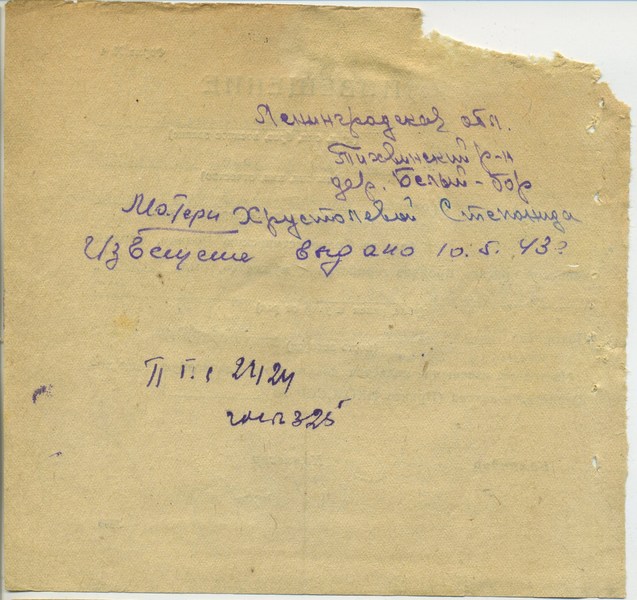 Ленинградская обл.
Тихвинский р-н
дер. Белый-бор
Матери Хрусталевой Степонида
Извещение выдано 10.5.43г
ПП.С 2424
госп 325